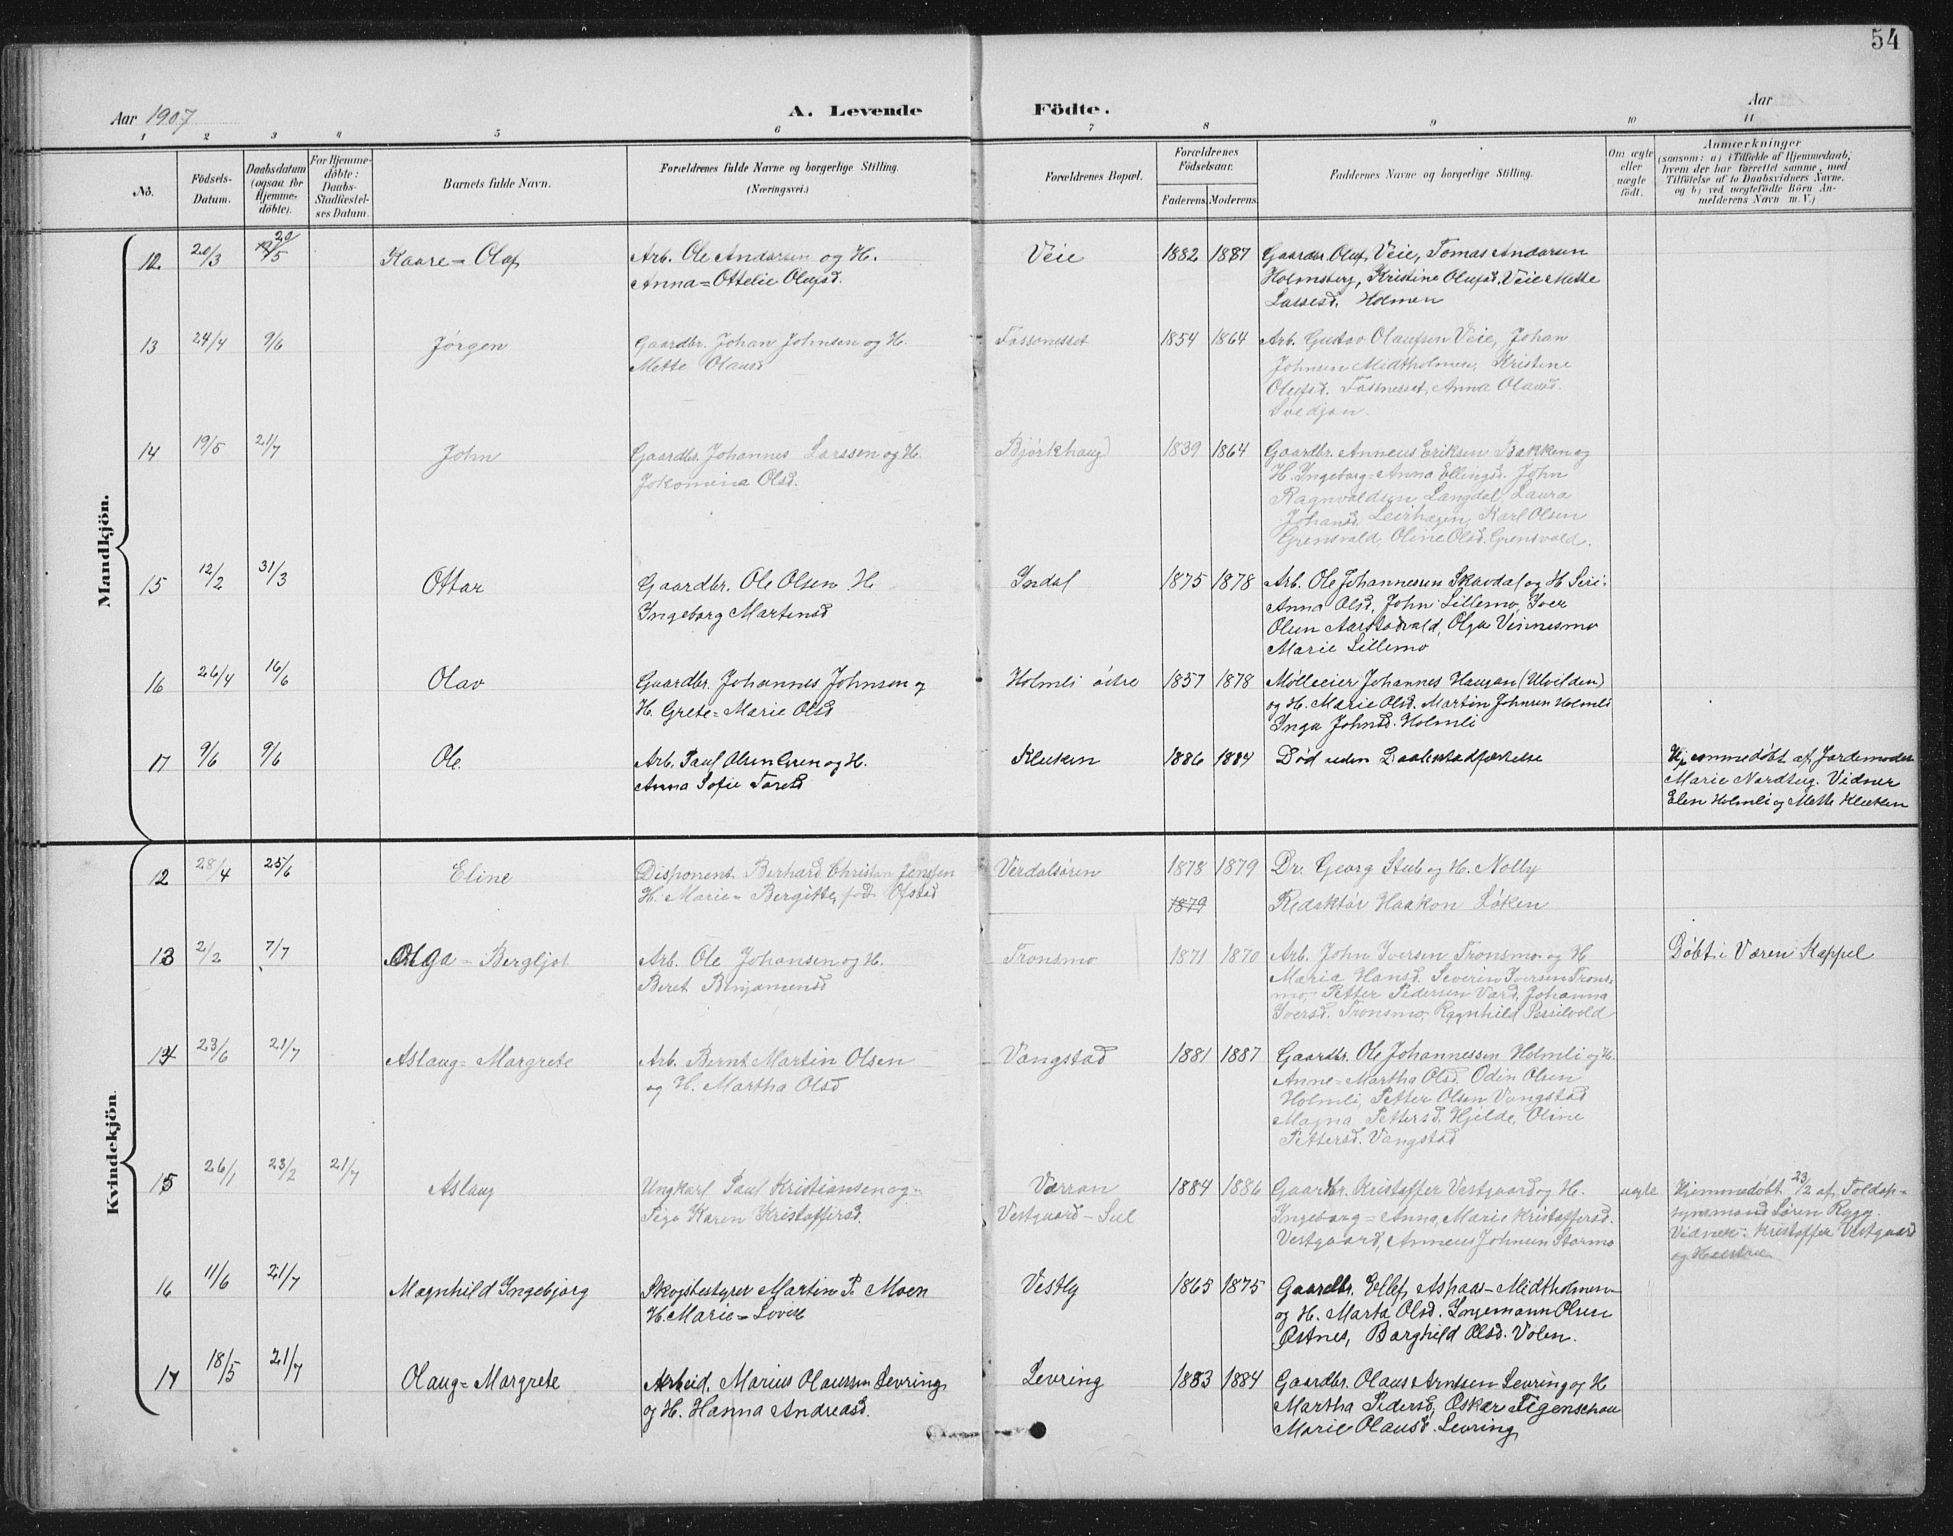 54
Aar 1907 A. Levende Födte. Aar
1 2 3 4 5 6 7 8 9 10 11
No.
Födsels-Datum.
Daabsdatum (ogsaa for Hjemme-döbte).
For Hjemme-döbte: Daabs-Stadfæstel-ses Datum.
Barnets fulde Navn.
Forældrenes fulde Navne og borgerlige Stilling.
(Næringsvei.)
Forældrenes Bopæl.
Forældrenes Födselsaar.
Faderens. Moderens.
Faddernes Navne og borgerlige Stilling.
Om ægte eller uægte födt.
Anmærkninger
(saasom: a) i Tilfælde af Hjemmedaab,
hvem der har forrettet samme, med
Tilföielse af to Daabsvidners Navne,
og b) ved uægtefödte Börn An-
melderens Navn m. V.)
Mandkjön.
12 20/3 20/5 Kaare=Olaf
Arb. Ole Andersen og H.
Anna=Ottelie Olufsd.
Veie 1882 1887
Gaardbr. Oluf Veie, Tomas Andersen
Holmsberg, Kristine Olufsd. Veie Mette
Lassesd. Holmen
13 24/4 9/6 Jørgen
Gaardbr. Johan Johnsen og H.
Mette Olausd
Fossnesset 1854 1864
Arb. Gustav Olaufsen Veie, Johan
Johnsen Midtholmen, Kristine
Olufsd. Fossnesset, Anna Olausd.
Svedjan.
14 19/5 21/7 John
Gaardbr. Johannes Larssen og H.
Jokomina Olsd.
Bjørkhaug 1839 1864
Gaardbr. Anneus Eriksen Bakken og
H. Ingeborg=Anna Ellingsd. John
Ragnvaldsen Langdal, Laura
Johansd. Leirhagen, Karl Olsen
Grensvald, Oline Olsd. Grensvald.
15 12/2 31/3 Ottar
Gaardbr. Ole Olsen H
Ingeborg Martinsd
Indal 1875 1878
Arb. Ole Johannesen Skavdal og H. Seri=
Anna Olsd, John Lillemo, Iver
Olsen Aarstadvald, Olga Vinnesmo
Marie Lillemo
16 26/4 16/6 Olav
Gaardbr. Johannes Johnsen og
H. Grete=Marie Olsd
Holmli østre 1857 1878
Mølleeier Johannes Haugan (Ulvilden)
og H. Marie Olsd. Martin Johnsen Holmli
Inga Johnsd. Holmli
17 9/6 9/6 Ole
Arb. Paul Olsen Green og H.
Anna Sofie Toresd
Kluken 1886 1884
Død uden Daabsstadfæstelse
Hjemmedøbt af Jordemoder
Marie Nordteug. Vidner
Elen Holmli og Mette Kluken
Kvindekjön.
12 28/4 25/6 Eline
Disponent Berhard Christian Jenssen
H. Marie=Bergitte, født Ofstad
Verdalsøren 1878 1879
1879
Dr. Georg Stub og H. Nolly
Redaktør Haakon Løken
13 2/2 7/7 Olga=Bergljot
Arb. Ole Johansen og H.
Beret Benjamensd
Tronsmo 1871 1870
Arb. John Iversen Tronsmo og H
Maria Hansd. Severin Iversen Trons=
mo, Petter Pedersen Vard, Johanna
Iversd. Tronsmo, Ragnhild Possilvold
Døbt i Væren Kappel
14 23/6 21/7 Aslaug=Margrete
Arb. Bernt Martin Olsen
og H. Martha Olsd
Vangstad 1881 1887
Gaardbr. Ole Johannessen Holmli og H.
Anne=Martha Olsd. Odin Olsen
Holmli, Petter Olsen Vangstad
Magna Pettersd. Hjelde, Oline
Pettersd. Vangstad
15 26/1 23/2 21/7 Aslaug
Ungkarl Paul Kristiansen og
Pige Karen Kristoffersd.
Værran
Vestgaard-Sul
1884 1886
Gaardbr. Kristoffer Vestgaard og H.
Ingeborg=Anna, Marie Kristoffersd.
Vestgaard, Anneus Johnsen Stormo
uægte
Hjemmedøbt 23/2 af Toldop=
synsmand Søren Rygg.
Vidner: Kristoffer Vestgaard
og Hustru
16 11/6 21/7 Magnhild Ingebjørg
Skogbestyrer Martin P. Moen
H. Marie=Lovise
Vestly 1865 1875
Gaardbr. Ellef Aspaas=Midtholmen
og H. Marta Olsd. Ingemann Olsen
Østnes, Borghild Olsd. Volen.
17 18/5 21/7 Olaug=Margrete
Arbeid. Marius Olaussen Levring
og H. Hanna Andreasd.
Levring 1883 1884
Gaardbr. Olaus Arntsen Levring og H
Martha Pedersd, Oskar Figenschou
Marie Olausd. Levring